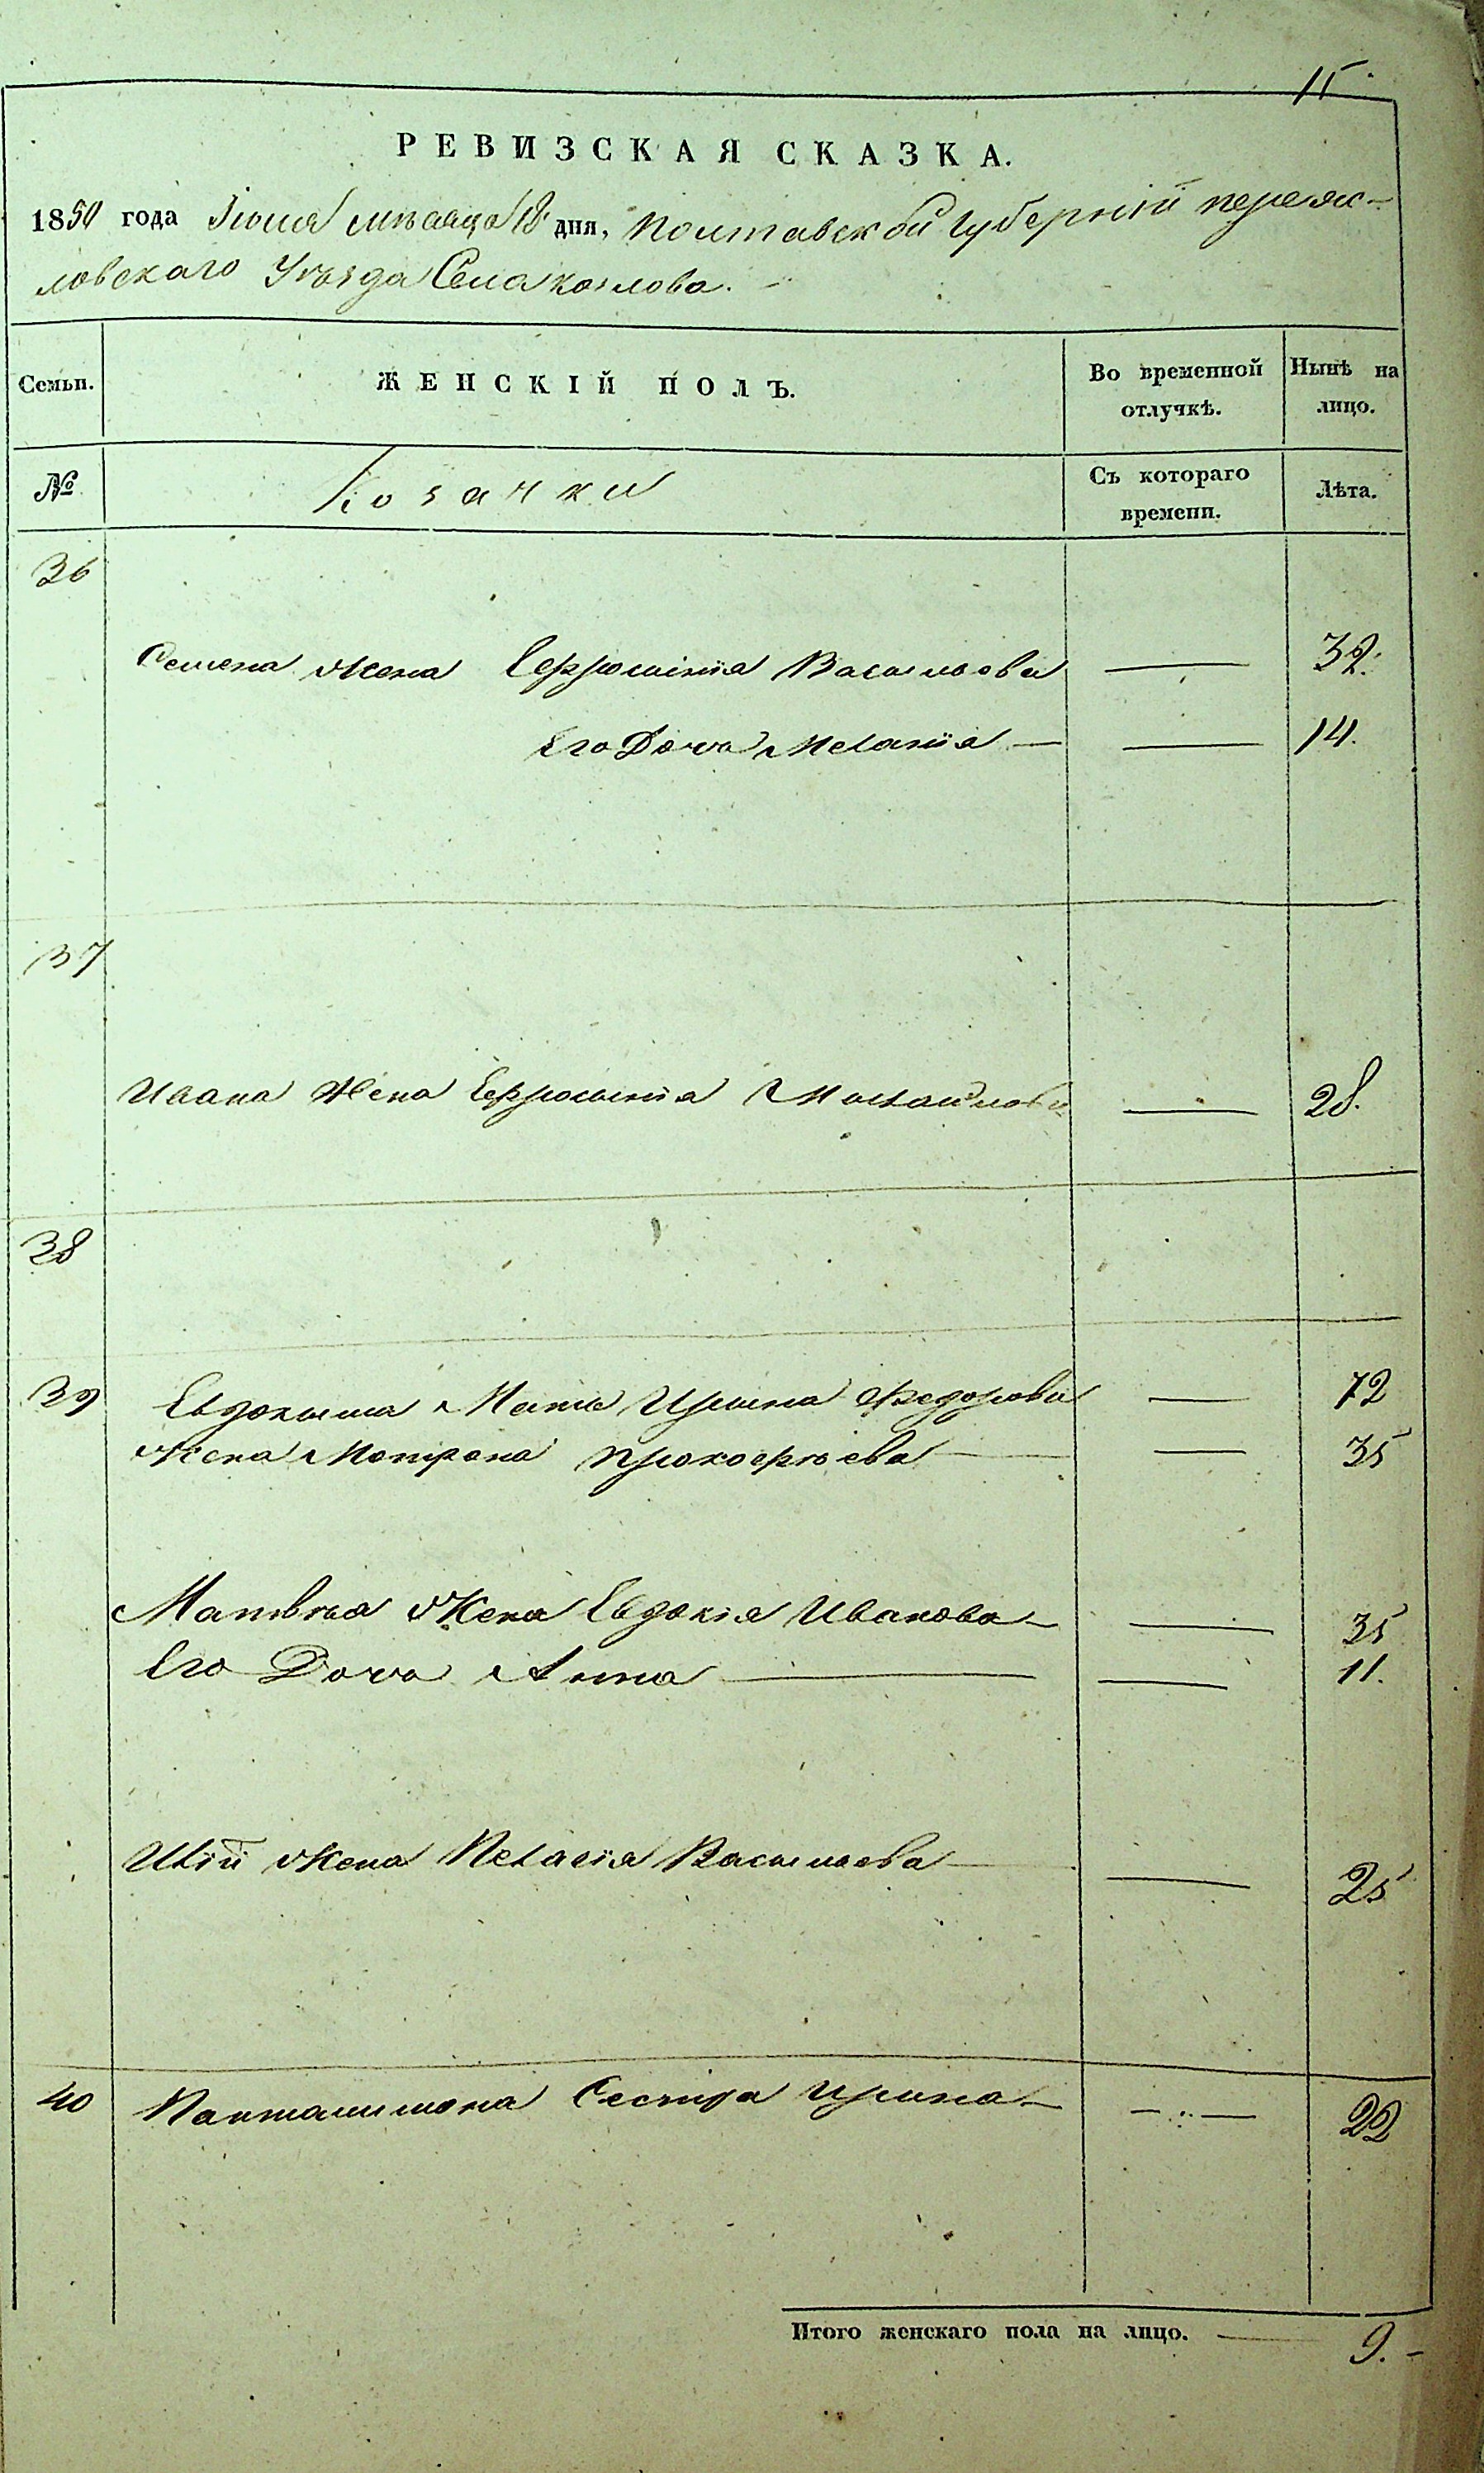 15.
РЕВИЗСКАЯ СКАЗКА.
1850 года мѣсяца 18 дня, Полтавской Губерніи переяс-
ловскаго Уѣзда Села козлова.
Семьи. ЖЕНСКІЙ ПОЛЪ. Во временной отлучкѣ. Нынѣ на лицо.
№ Козачки Съ котораго времени. Лѣта.
36
Семена жена Ефросинія Васильева — 32.
Его Дочь Меланія — — 14.
37
Ивана Жена Ефросинія Михайлова — 28.
38
39 Евдокима Мать Ирина Федорова — 72
Жена Мотрона Прокофьева — — 35
Матвѣя Жена Евдокія Иванова — — 35
Его Дочь Анна — — 11.
Жена Пелагія Васильева — — 25
40 Пантелимона Сестра Ирина — — 22
Итого женскаго пола на лицо. — 9. -